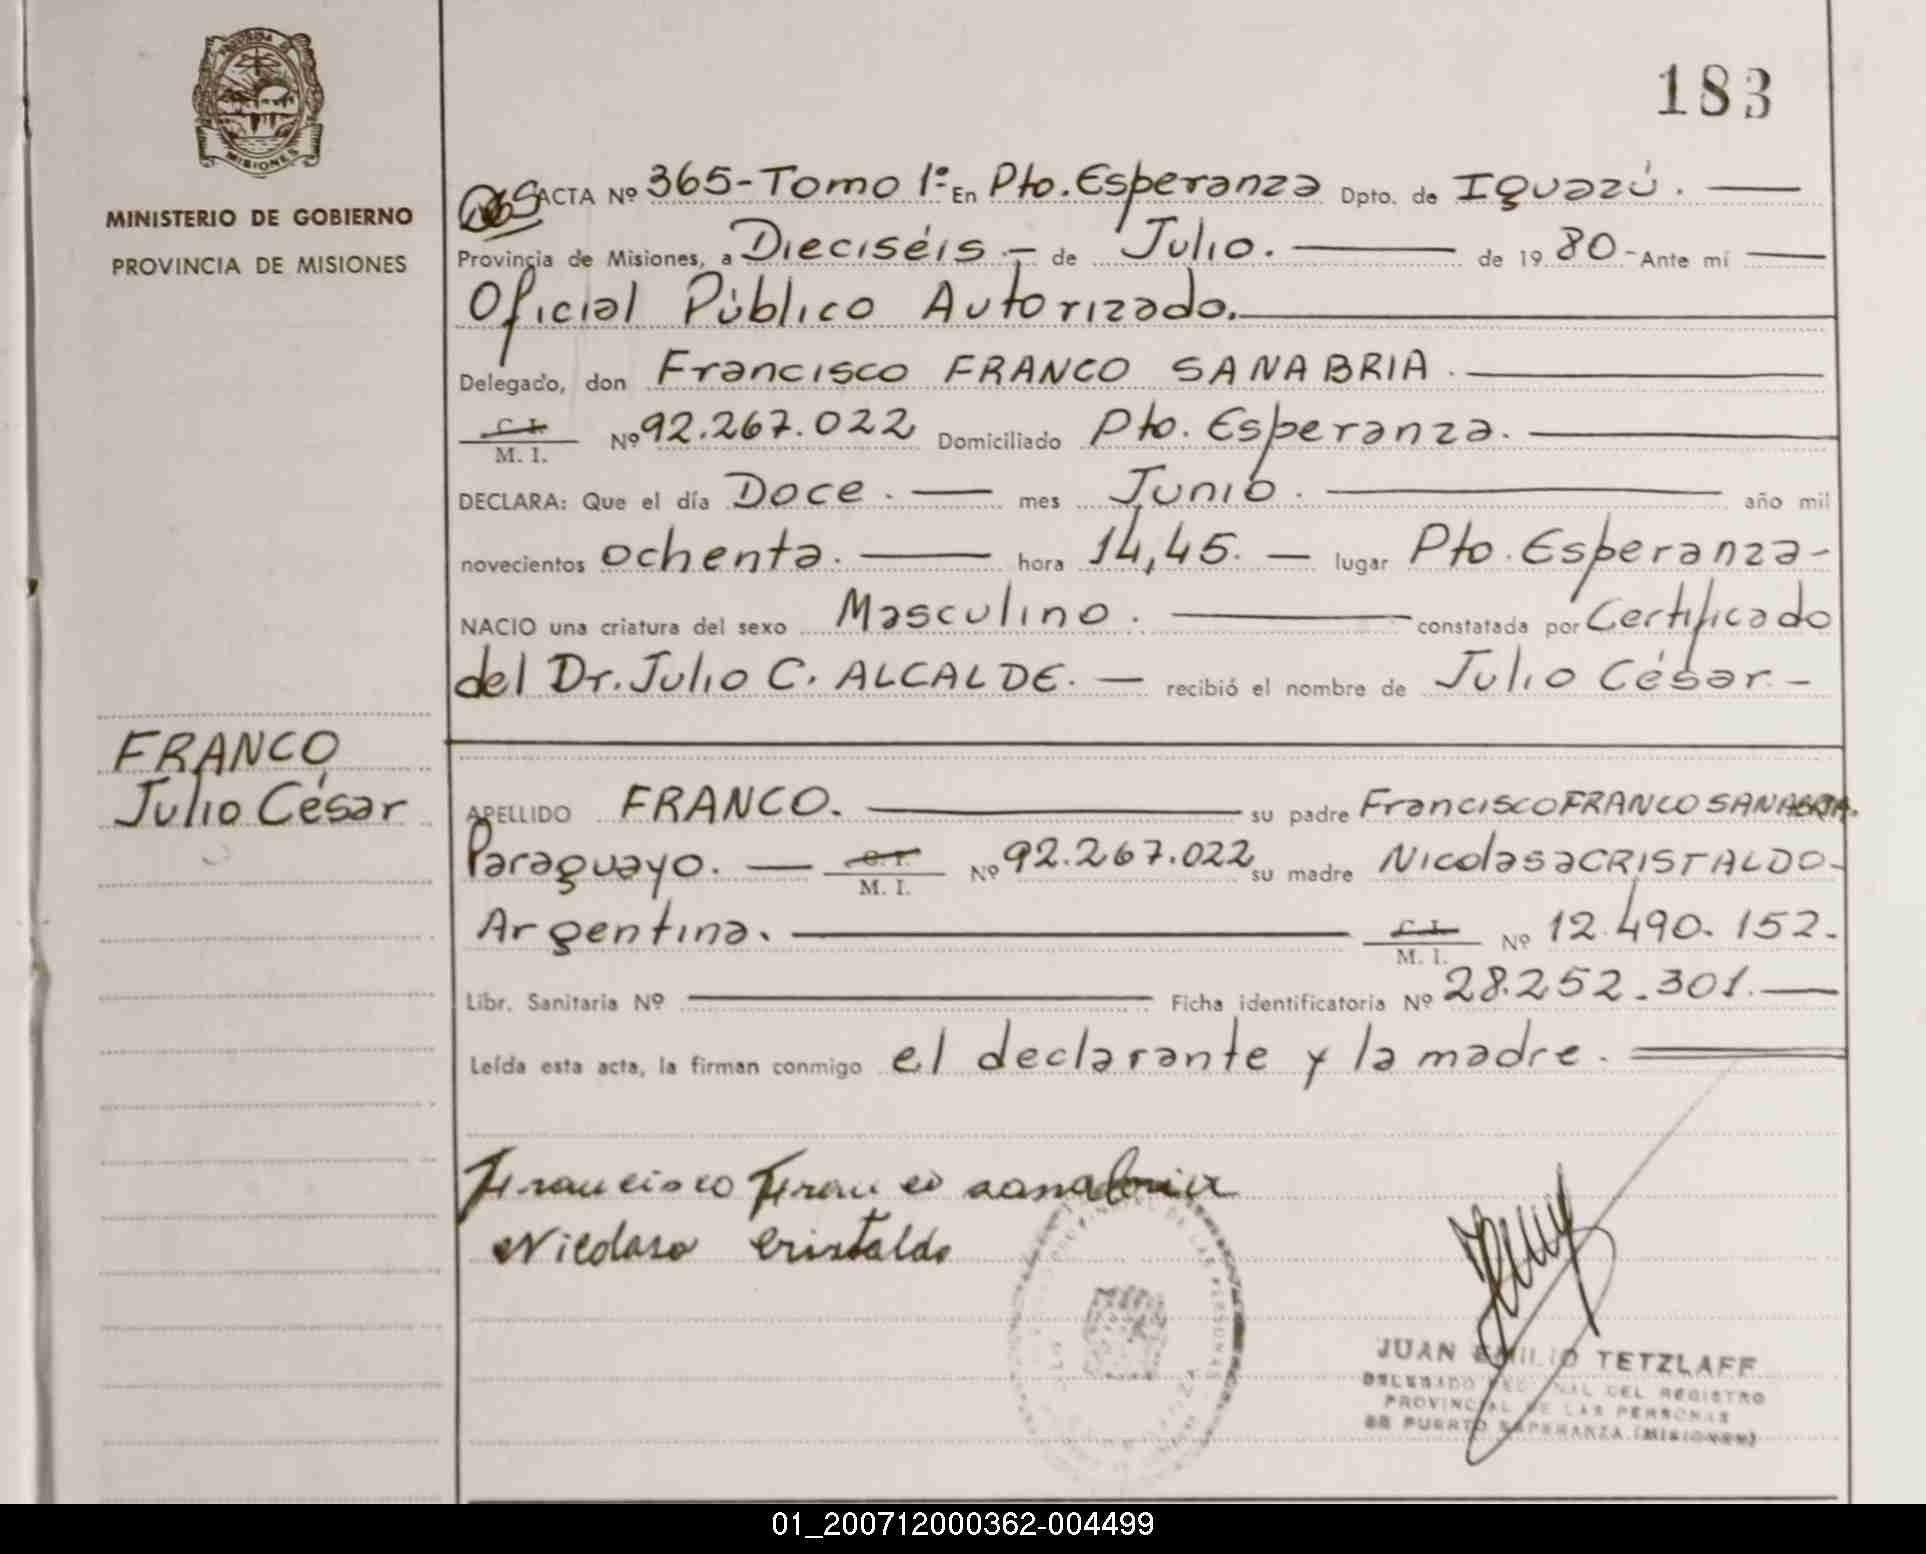 PROVINCIA DE
MISIONES
MINISTERIO DE GOBIERNO
PROVINCIA DE MISIONES
183
ACTA Nº 365-Tomo 1º En Pto. Esperanza Dpto. de Iguazú.
Provincia de Misiones, a Dieciséis - de Julio. de 1980- Ante mí
Oficial Público Autorizado.
Delegado, don Francisco FRANCO SANABRIA.
C. I.
M. I. Nº 92.267.022 Domiciliado Pto. Esperanza.
DECLARA: Que el día Doce. mes Junio. año mil
novecientos ochenta. hora 14,45. lugar Pto. Esperanza-
NACIO una criatura del sexo Masculino. constatada por Certificado
del Dr. Julio C. ALCALDE. recibió el nombre de Julio César-
FRANCO
Julio César
APELLIDO FRANCO. su padre Francisco FRANCO SANABRIA.
Paraguayo. C. I. M. I. Nº 92.267.022 su madre Nicolasa CRISTALDO-
Argentina. C. I. M. I. Nº 12.490.152.
Libr. Sanitaria Nº Ficha identificatoria Nº 28.252.301.
Leída esta acta, la firman conmigo el declarante y la madre.
Francisco Franco sanabria
Nicolasa Cristaldo
PROVINCIAL DE LAS PERSONAS
JUAN EMILIO TETZLAFF
DELEGADO REGIONAL DEL REGISTRO
PROVINCIAL DE LAS PERSONAS
DE PUERTO ESPERANZA (MISIONES)
01_200712000362-004499